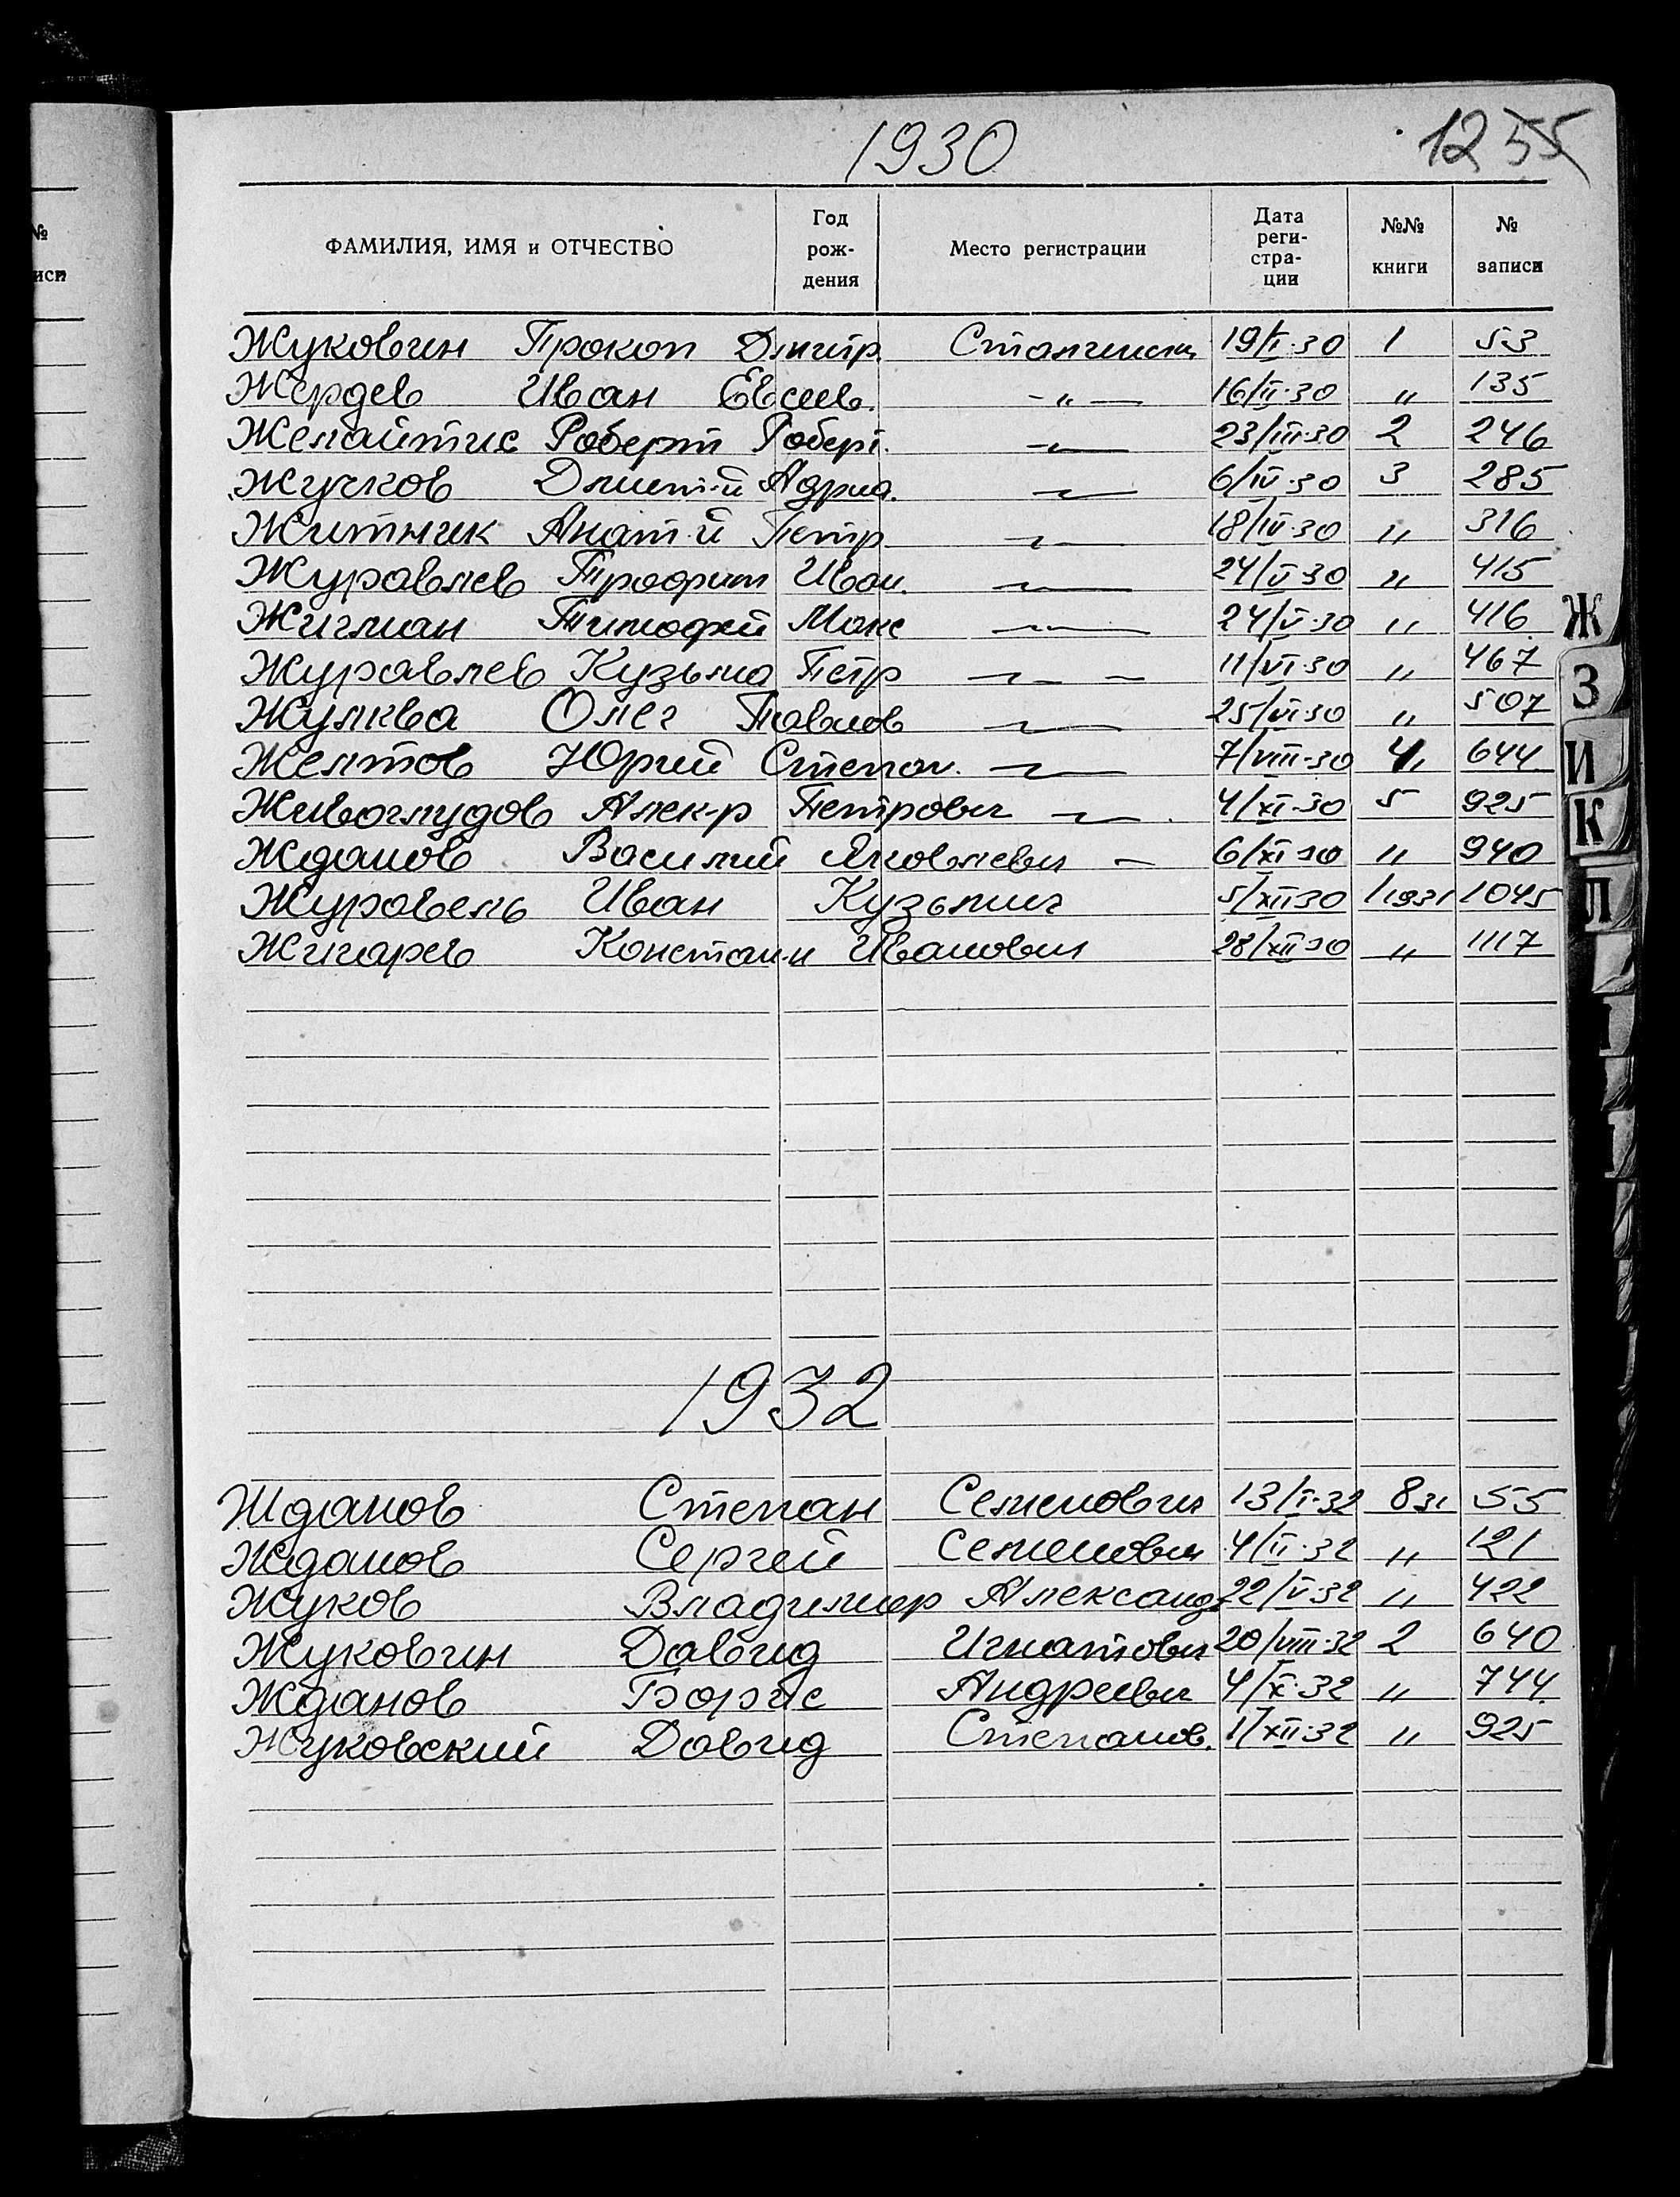 1930
12 55
ФАМИЛИЯ, ИМЯ и ОТЧЕСТВО Год рож- дения Место регистрации Дата реги- стра- ции №№ книги № записи
Жуковин Прокоп Дмитр. 19/I-30 1 53
Жердев Иван Евсеев. -"- 16/II-30 " 135
Желайтис Роберт Роберт. 23/III-30 2 246
Жучков Дмит-й Адриа. 6/IV-30 3 285
Житник Анат-й Петр. 18/IV-30 " 316
Журавлев Трофим Иван. 24/V-30 " 415
Жигман Тимофей Макс 24/V-30 " 416
Журавлев Кузьма Петр 11/VI-30 " 467
Жулква Олег Павлов 25/VI-30 " 507
Желтов Юрий Степан. 7/VIII-30 4 644
Живоглудов Алек-р Петрович 4/XI-30 5 925
Жданов Василий Яковлевич 6/XI-30 " 940
Журавель Иван Кузьмич 5/XII-30 1 1931 1045
Жигарев Констан-н Иванович 28/XII-30 " 1117
1932
Жданов Степан Семенович 13/I-32 8 31 55
Жданов Сергей Семенович 4/II-32 " 121
Жуков Владимир Александ 22/V-32 " 422
Жуковин Давид Игнатович 20/VIII-32 2 640
Жданов Борис Андреевич 4/X-32 " 744
Жуковский Давид Степанов. 1/XII-32 " 925
Ж
З
И
К
Л
№
иси